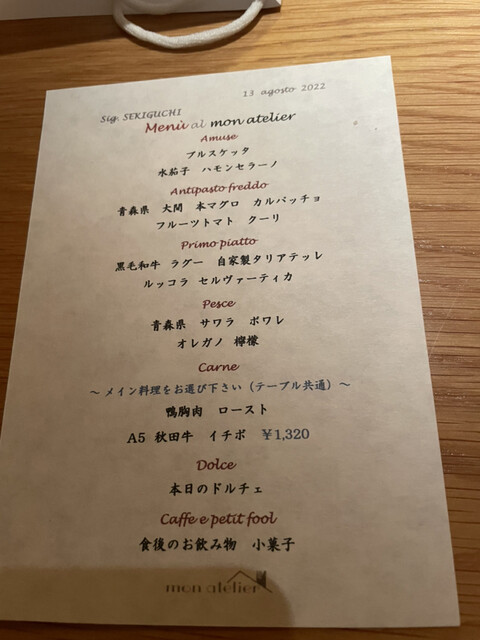 13 agosto 2022
Sig. SEKIGUCHI
Menù al mon atelier
Amuse
ブルスケッタ
水茄子 ハモンセラーノ
Antipasto freddo
青森県 大間 本マグロ カルパッチョ
フルーツトマト クーリ
Primo piatto
黒毛和牛 ラグー 自家製タリアテッレ
ルッコラ セルヴァーティカ
Pesce
青森県 サワラ ポワレ
オレガノ 檸檬
Carne
～ メイン料理をお選び下さい（テーブル共通）～
鴨胸肉 ロースト
A5 秋田牛 イチボ ￥1,320
Dolce
本日のドルチェ
Caffe e petit fool
食後のお飲み物 小菓子
mon atelier